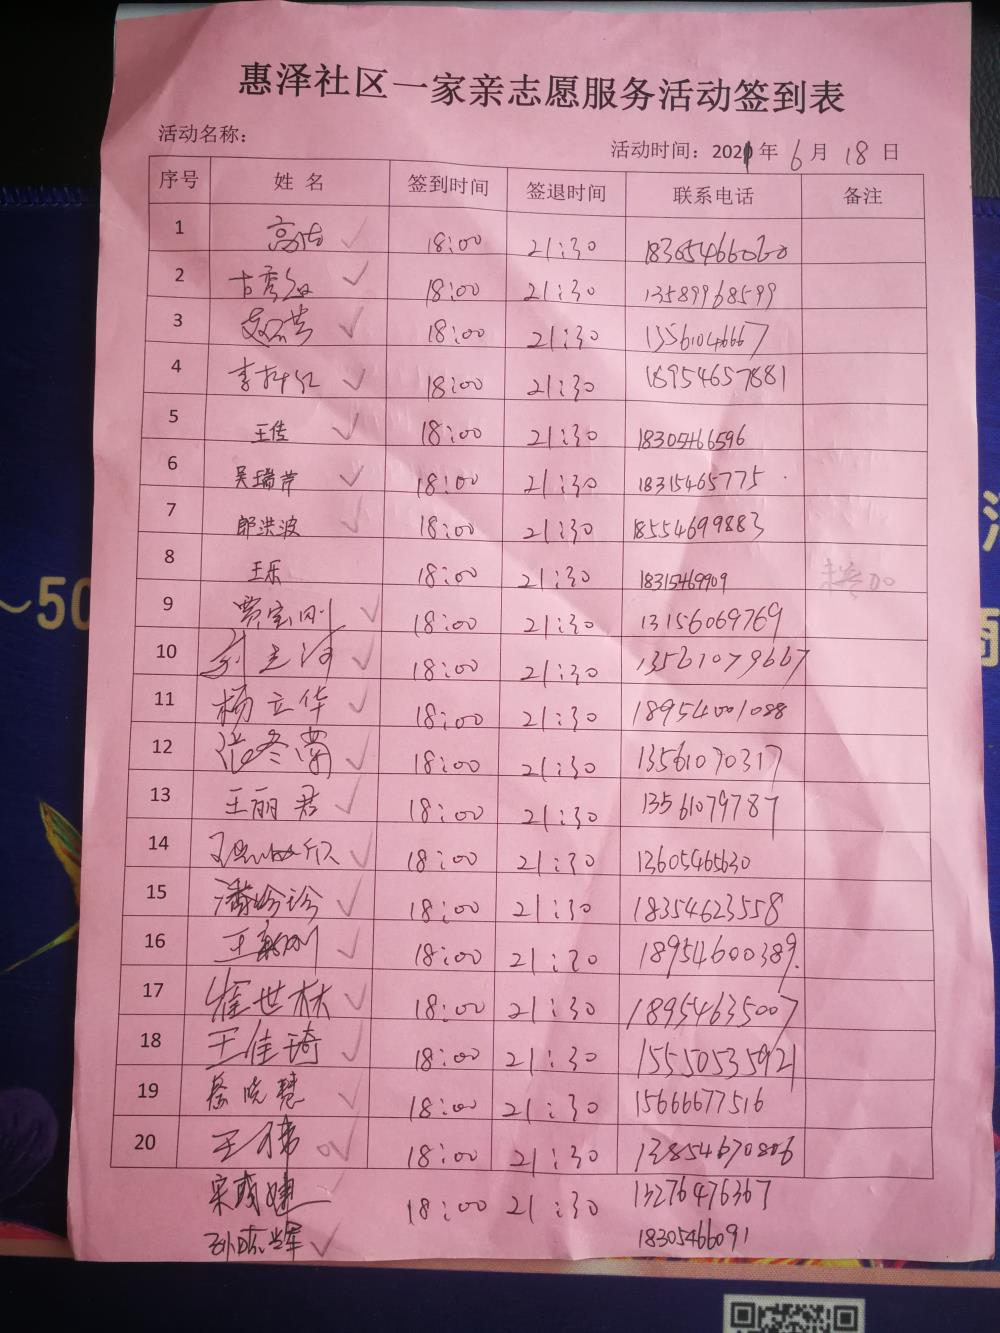 惠泽社区一家亲志愿服务活动签到表
活动名称：
活动时间：2021年 6月 18日
序号 姓 名 签到时间 签退时间 联系电话 备注
1 18:00 21:30 18365466060
2 18:00 21:30 13589968599
3 18:00 21:30 13561046667
4 18:00 21:30 18954657881
5 王佳 18:00 21:30 18305466596
6 吴瑞芹 18:00 21:30 18315465775
7 郎洪波 18:00 21:30 18554699883
8 王乐 18:00 21:30 18315469909 未参加
9 贾宝刚 18:00 21:30 13156069769
10 18:00 21:30 13561079667
11 杨立华 18:00 21:30 18954001088
12 张冬菊 18:00 21:30 13561070317
13 王丽君 18:00 21:30 13561079787
14 18:00 21:30 13605465630
15 潘珍珍 18:00 21:30 18354623558
16 王新刚 18:00 21:30 18954600389
17 崔世林 18:00 21:30 18954635007
18 王佳琦 18:00 21:30 15550535921
19 蔡晓慧 18:00 21:30 15666677516
20 王倩 18:00 21:30 132854670806
18:00 21:30 13276476367
18305466091
～50